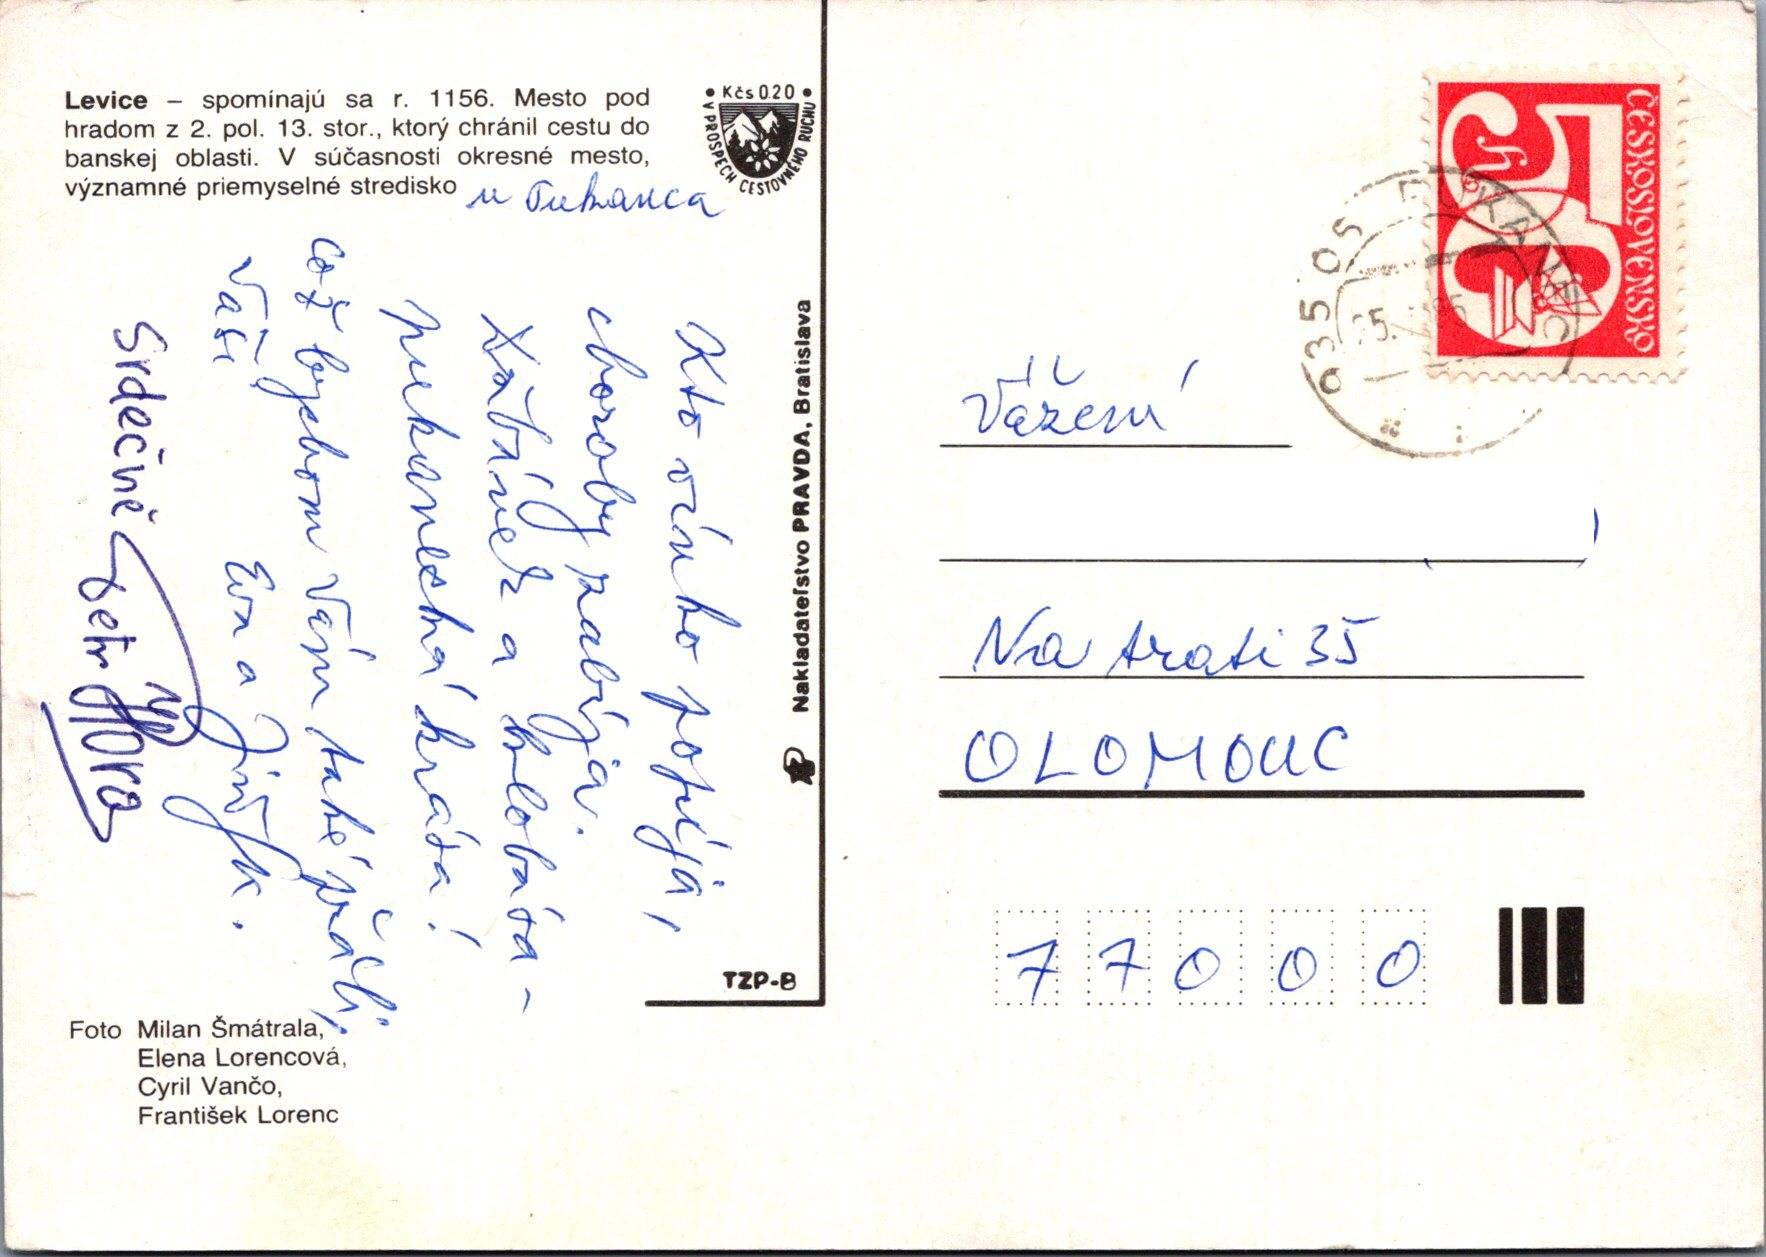 Levice – spomínajú sa r. 1156. Mesto pod
hradom z 2. pol. 13. stor., ktorý chránil cestu do
banskej oblasti. V súčasnosti okresné mesto,
významné priemyselné stredisko
u Pukanca
• Kčs 0.20 •
V PROSPECH CESTOVNÉHO RUCHU
Kto vínko popíja,
choroby zabíja.
Xabíněk a klobása -
pukanecká krása!
což bychom Vám také přáli,
Vaši Eva a Jiří K.
Srdečně
Petr Hora
Nakladateľstvo PRAVDA, Bratislava
TZP-B
Foto Milan Šmátrala,
Elena Lorencová,
Cyril Vančo,
František Lorenc
ČESKOSLOVENSKO
50 h
935 05 PUKANEC
Vážení
Na trati 35
OLOMOUC
77000